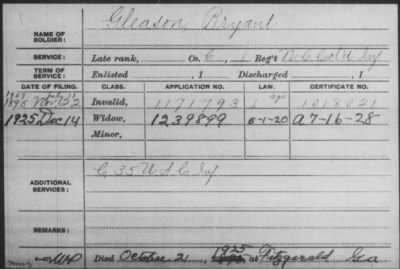 Gleason, Bryant
NAME OF SOLDIER:
SERVICE: Late rank, Co. C, 1 Reg't N.C. Col'd Inf
TERM OF SERVICE: Enlisted , 1 Discharged , 1
DATE OF FILING. CLASS. APPLICATION NO. LAW. CERTIFICATE NO.
Nov. 22 Invalid, 1171793 1018021
1925 Dec 14 Widow, 1239899 5-1-20 A 7-16-28
Minor,
ADDITIONAL SERVICES: C 35 U.S.C. Inf
REMARKS:
Died October 21, 1925 at Fitzgerald Ga